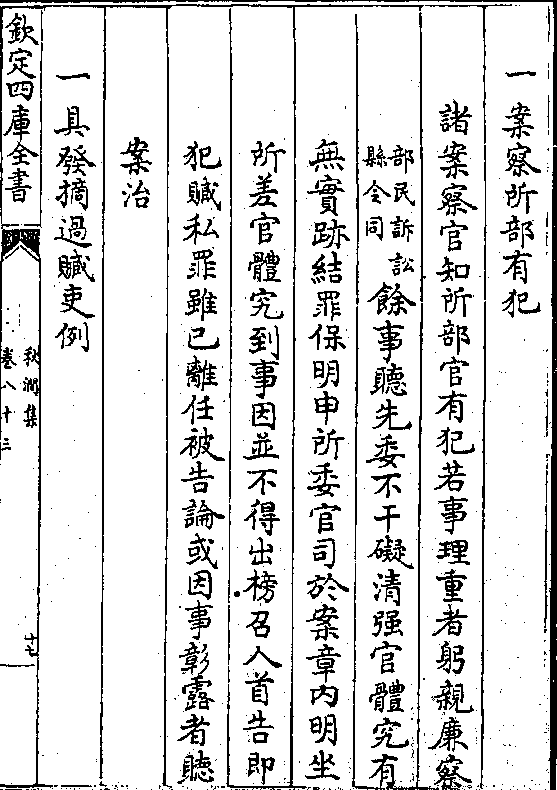 一案察所部有犯
諸案察官知所部官有犯若事理重者躬親廉察
部民訴訟
縣令同
餘事聽先委不干礙清强官體究有
無實跡結罪保明申所委官司於案章内明坐
所差官體究到事因並不得出榜召人首告即
犯贓私罪雖已離任被告論或因事彰露者聽
案治
一具發摘過贓吏例
欽定四庫全書
秋澗集
卷八十三
十七